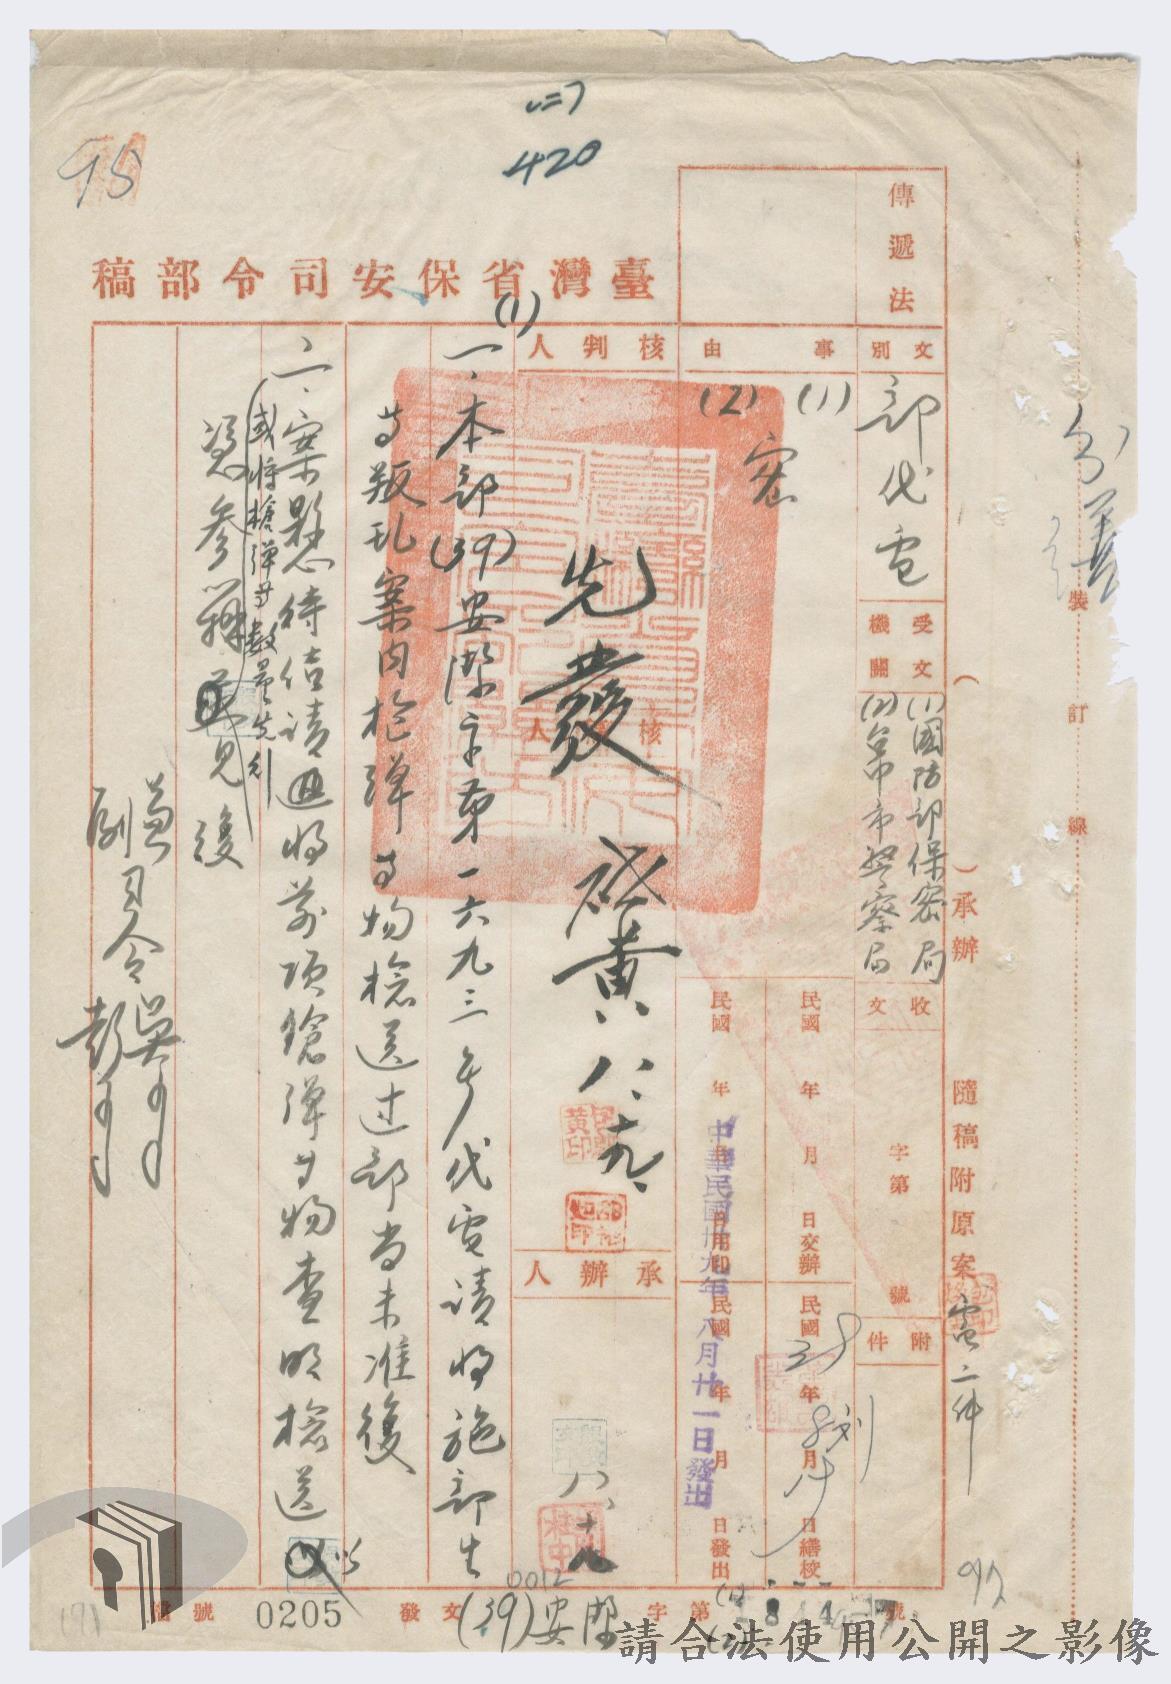 420
95
臺灣省保安司令部稿
傳遞法
文別
部代電
事由
(1)
(2)
密
核判人
先發
黃
八、十九、
受文機關
(1)國防部保密局
(2)台中市警察局
( )承辦
隨稿附原案
二件
裝訂線
收文
字第
號
附件
民國 年 月 日交辦
民國 年 月 日用印
民國39年8月 日繕校
民國 年 月 日發出
中華民國卅九年八月廿一日發出
承辦人
八、十九
(1)
一、本部(39)安潔字第一六九三號代電請將施部生
等叛乱案內枪弹等物檢送过部尚未准復
二、案懸待结請迅將前項鎗彈等物查明檢送
(或將槍弹等數量先行
憑參辦
見復
兼司令吳
副司令彭
發文
(39)安潔
字第
號
0012
0205
號
檔
92
請合法使用公開之影像